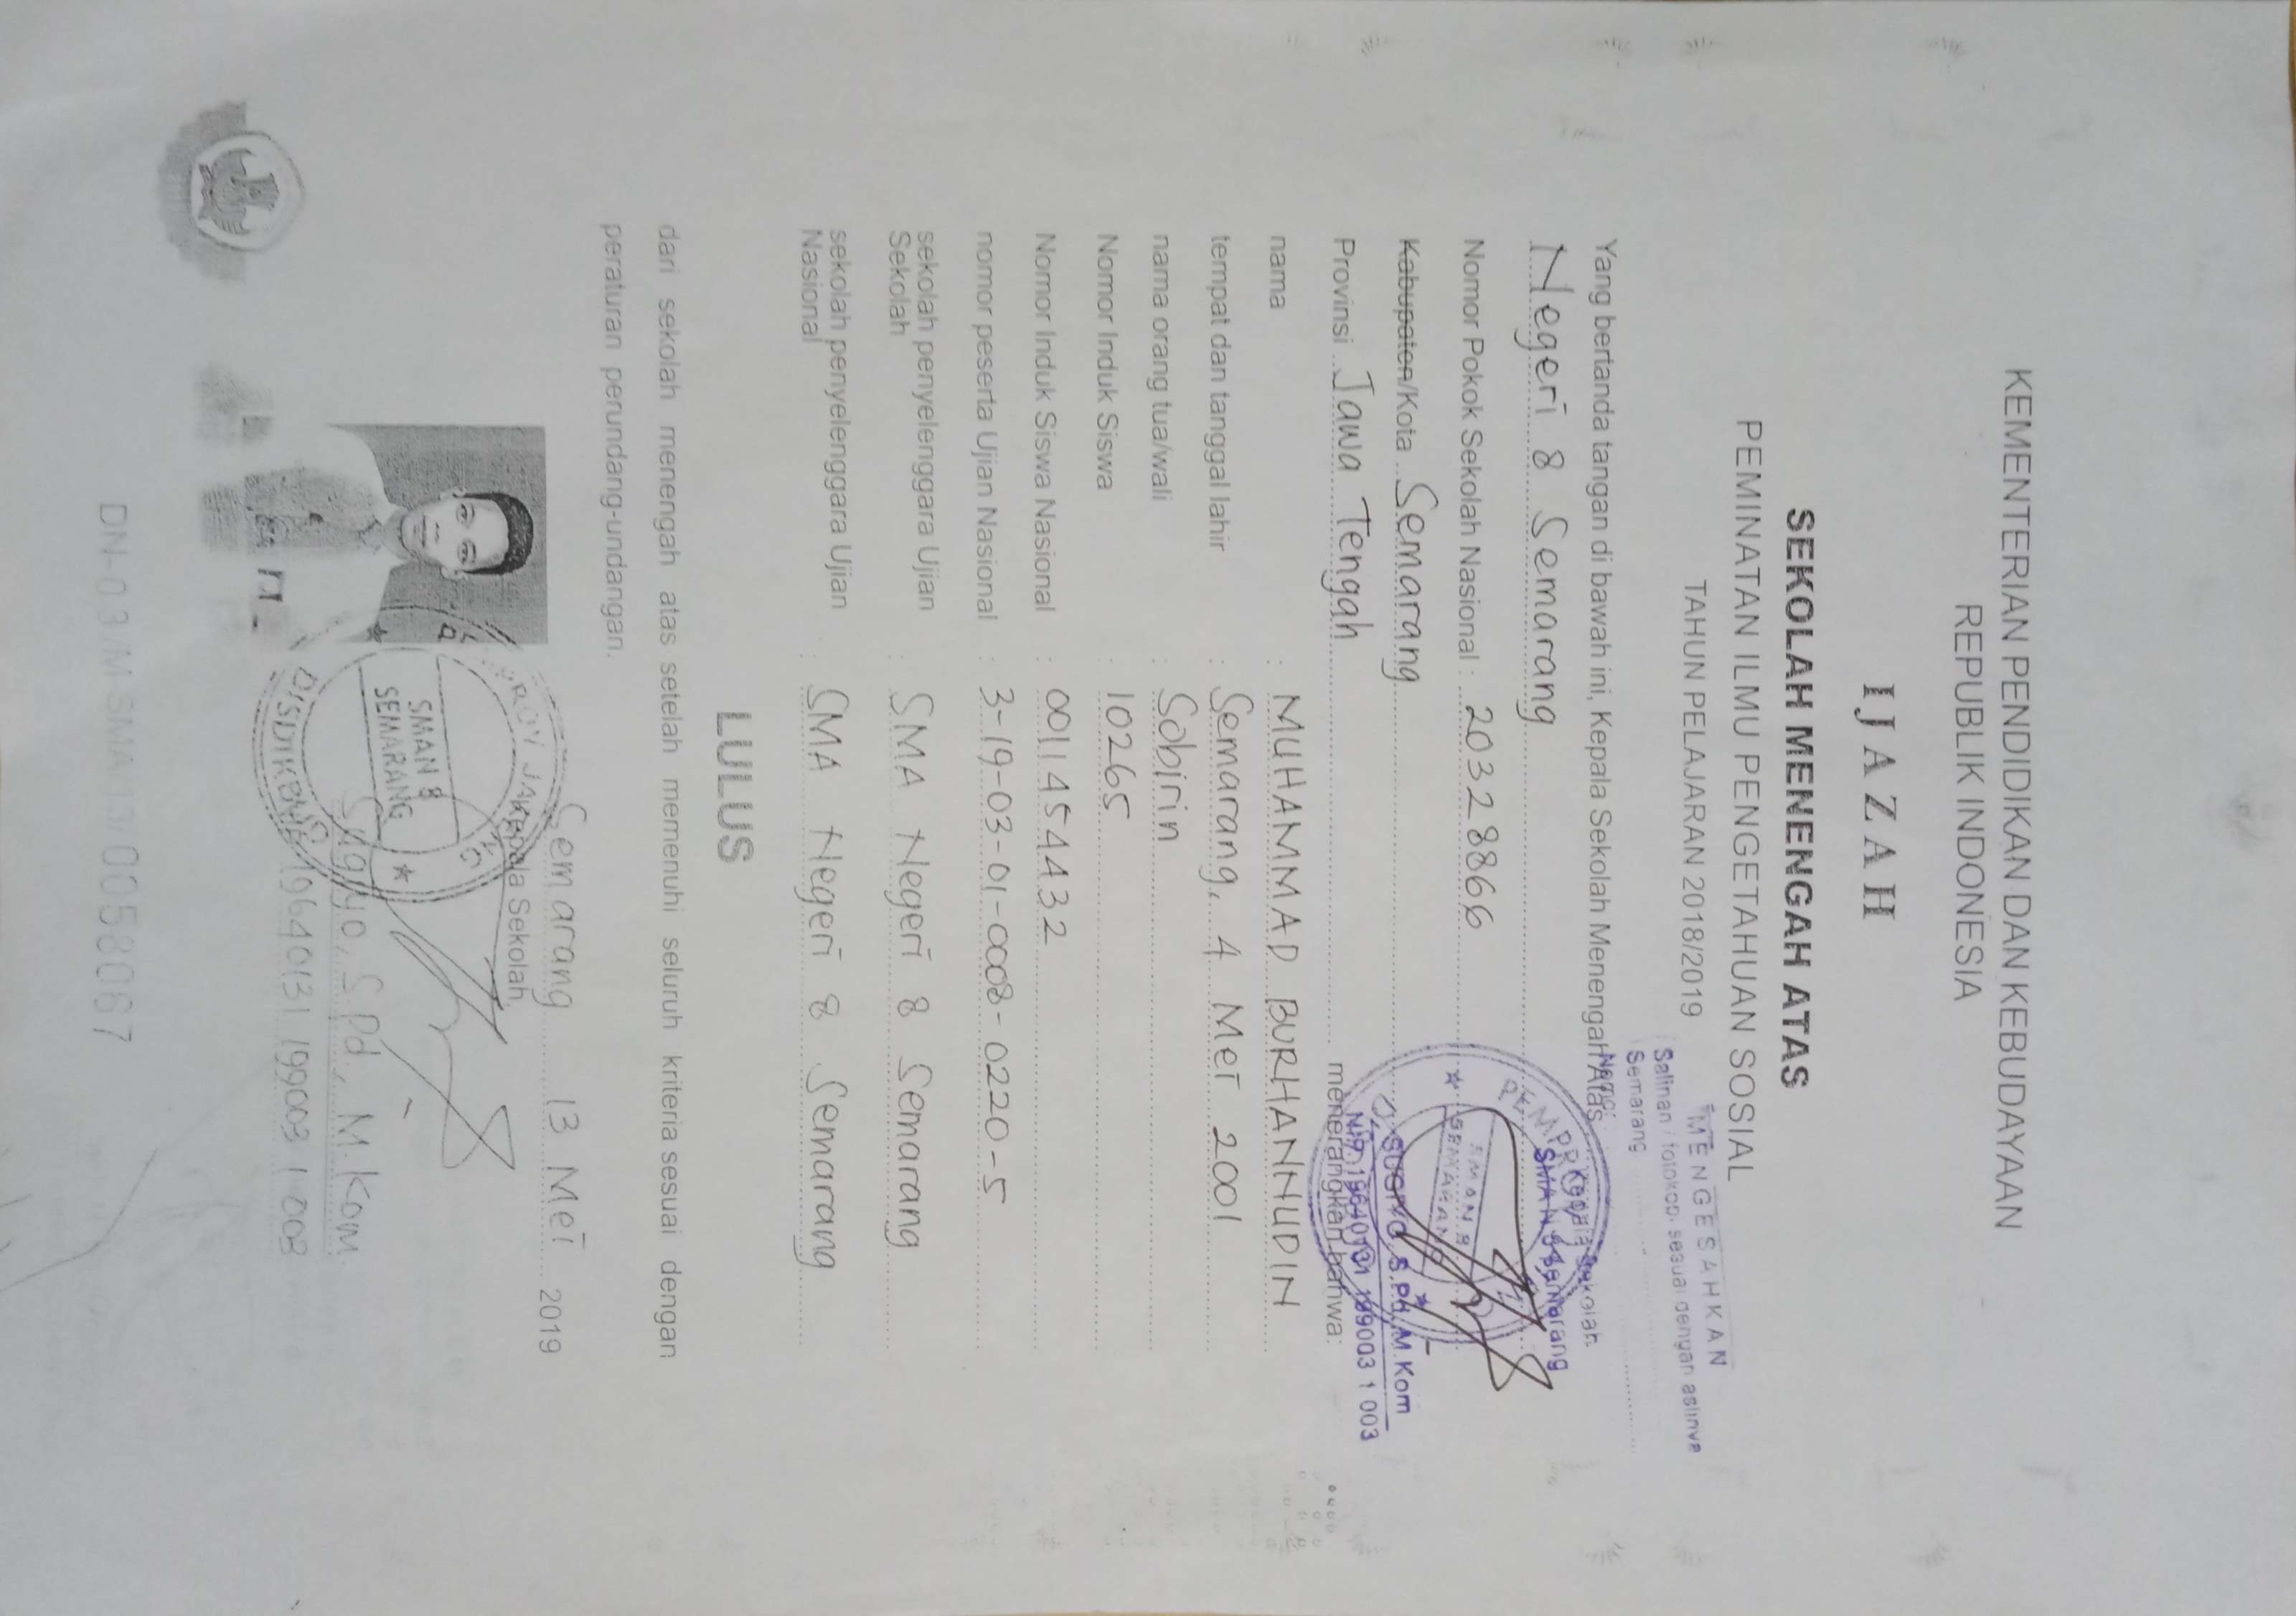 KEMENTERIAN PENDIDIKAN DAN KEBUDAYAAN
REPUBLIK INDONESIA
IJAZAH
SEKOLAH MENENGAH ATAS
PEMINATAN ILMU PENGETAHUAN SOSIAL
TAHUN PELAJARAN 2018/2019
MENGESAHKAN
Salinan / fotokopi sesuai dengan aslinya
Semarang
Yang bertanda tangan di bawah ini, Kepala Sekolah Menengah Atas
Kepala Sekolah
SMA N 8 Semarang
Negeri 8 Semarang
Nomor Pokok Sekolah Nasional : 20328866
SMAN 8
SEMARANG
Kabupaten/Kota Semarang
SUGIYO, S.Pd, M.Kom
NIP. 19640131 199003 1 003
Provinsi Jawa Tengah menerangkan bahwa:
nama : MUHAMMAD BURHANNUDIN
tempat dan tanggal lahir : Semarang, 4 Mei 2001
nama orang tua/wali : Sobirin
Nomor Induk Siswa : 10265
Nomor Induk Siswa Nasional : 0011454432
nomor peserta Ujian Nasional : 3-19-03-01-0008-0220-5
sekolah penyelenggara Ujian
Sekolah : SMA Negeri 8 Semarang
sekolah penyelenggara Ujian
Nasional : SMA Negeri 8 Semarang
LULUS
dari sekolah menengah atas setelah memenuhi seluruh kriteria sesuai dengan
peraturan perundang-undangan.
Semarang 13 Mei 2019
Kepala Sekolah,
SMAN 8
SEMARANG
DISDIKBUD
Sugiyo, S.Pd, M.Kom
19640131 199003 1 003
DN-03/M-SMA/13/0058067